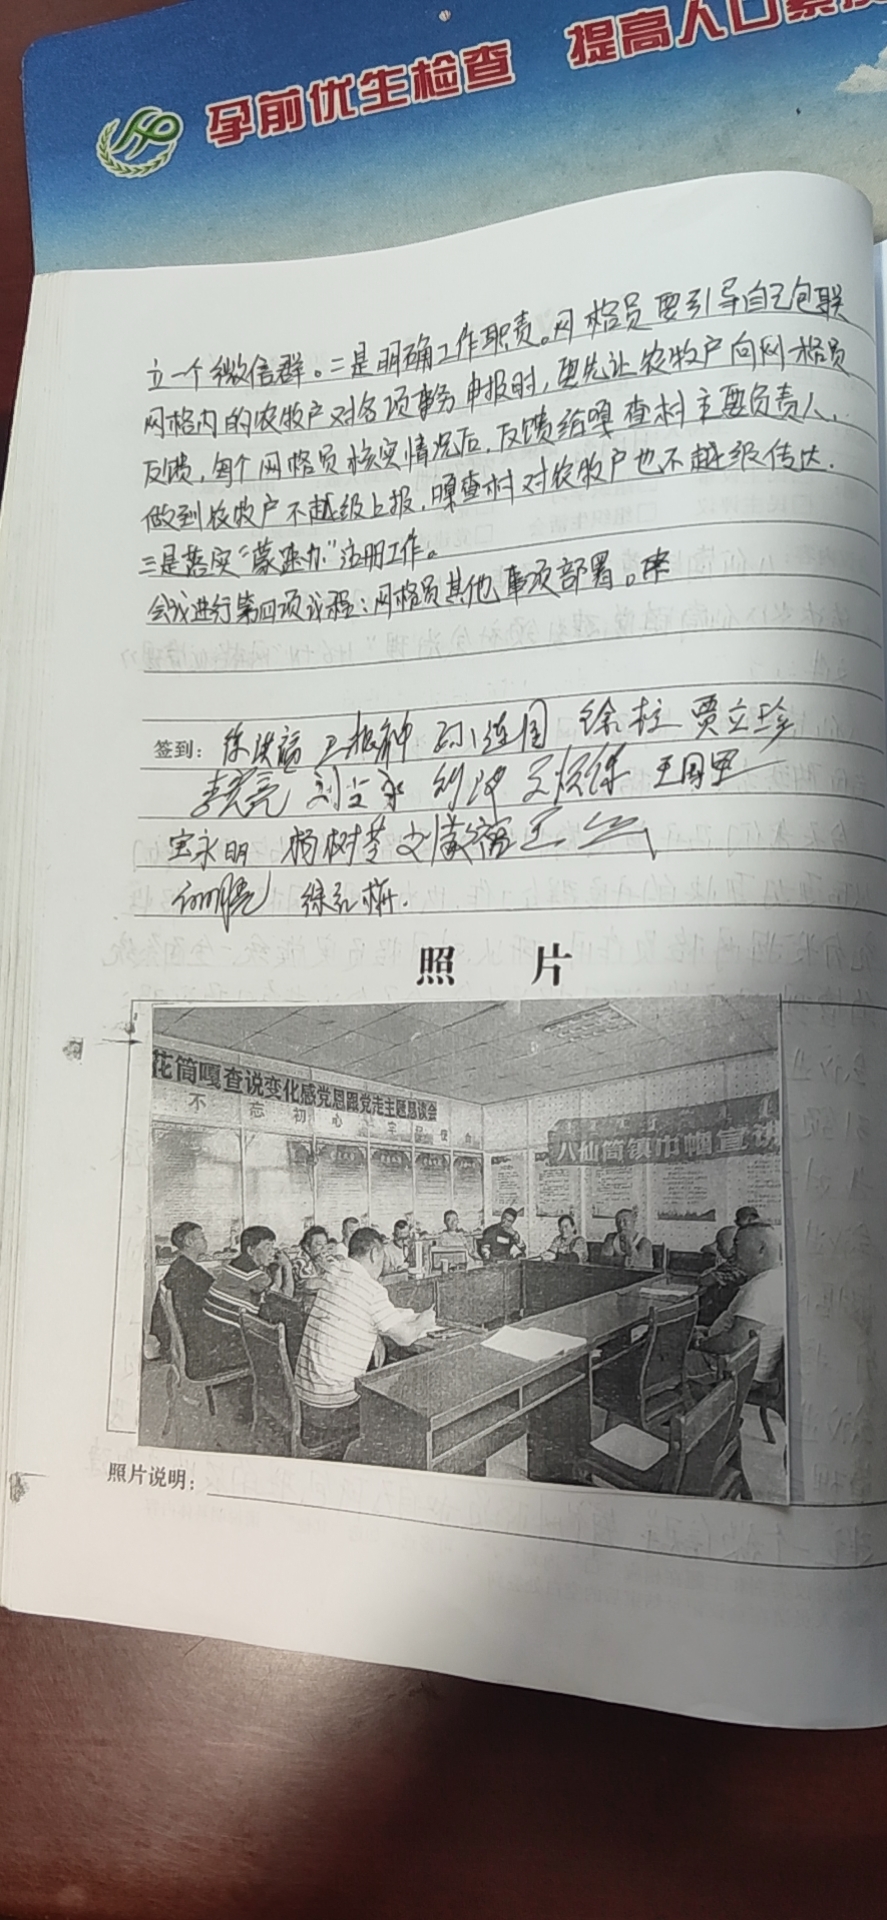 孕前优生检查 提高人口素质
立一个微信群。二是明确工作职责。网格员要引导自己包联
网格内的农牧户对各项事务申报时，要先让农牧户向网格员
反馈，每个网格员核实情况后，反馈给嘎查村主要负责人，
做到农牧户不越级上报，嘎查村对农牧户也不越级传达.
三是落实“蒙速办”注册工作。
会议进行第四项议程：网格员其他事项部署。
签到： 徐洪福 孙连国 徐柱 贾立珍
王国军
宝永明 杨树芩
徐红梅.
照 片
花筒嘎查说变化感党恩跟党走主题恳谈会
不忘初心 牢记使命
八仙筒镇巾帼宣讲
照片说明：